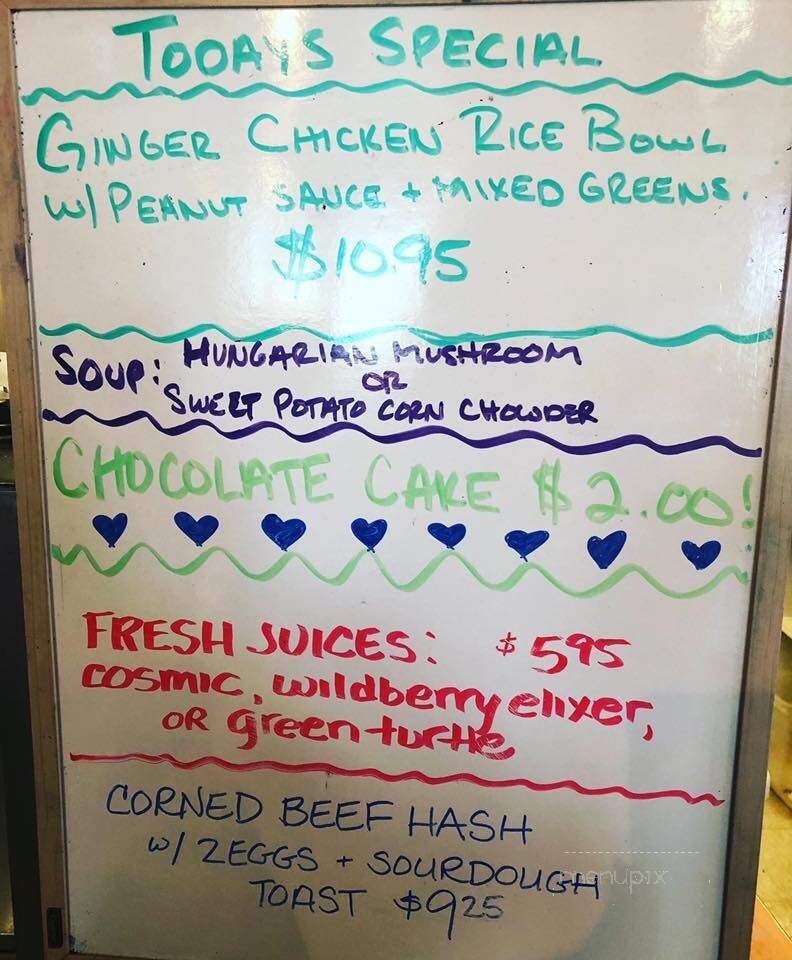 TODAYS SPECIAL
GINGER CHICKEN RICE BOWL
W/ PEANUT SAUCE + MIXED GREENS.
$10.95
SOUP: HUNGARIAN MUSHROOM
OR
SWEET POTATO CORN CHOWDER
CHOCOLATE CAKE $2.00!
FRESH JUICES: $595
COSMIC, wildberry elixer,
OR green turtle
CORNED BEEF HASH
W/ 2EGGS + SOURDOUGH
TOAST $925
menupix